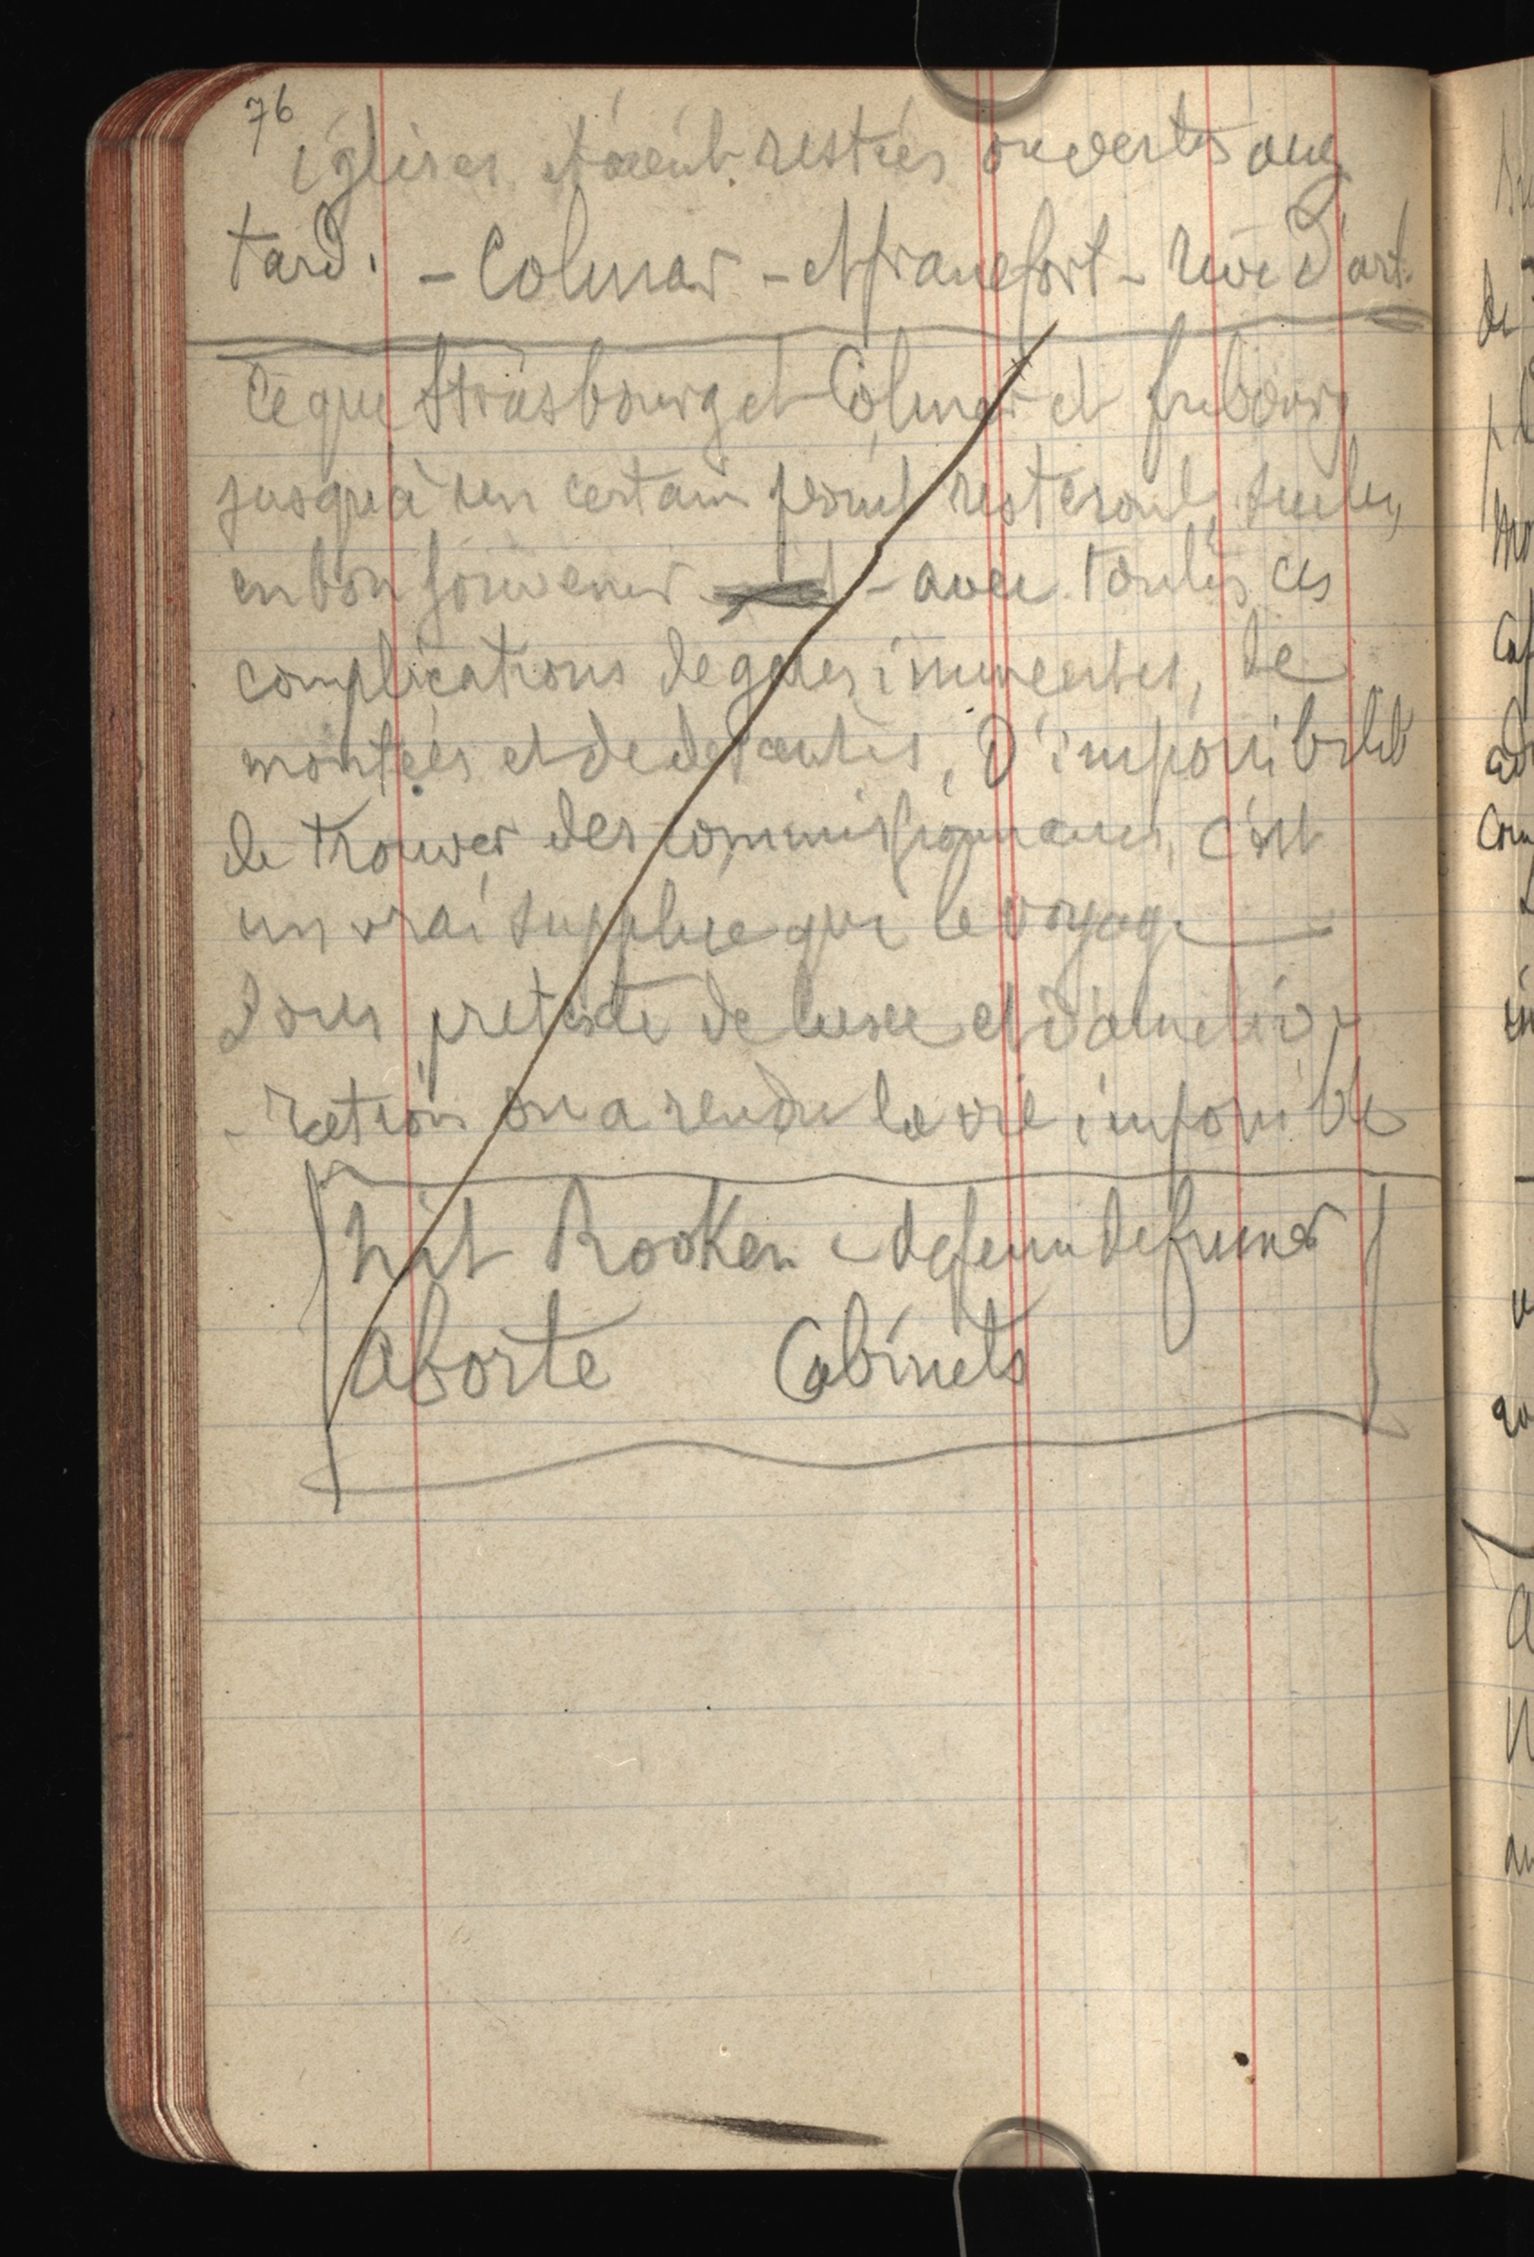 76
églises étaient restées ouvertes
tard. - Colmar - et francfort - rêve d'art.
Ce que Strasbourg et Colmar et fribourg
jusqu'à un certain point resteront seules
en bon souvenir - avec toutes ces
complications de gares immenses, de
montées et de descentes, d'impossibilité
de trouver des commissionnaires, c'est
un vrai supplice que le voyage
Sous prétexte de luxe et d'amélio-
- ration on a rendu la vie impossible
nit Rooken - defense de fumer
aborte Cabinets